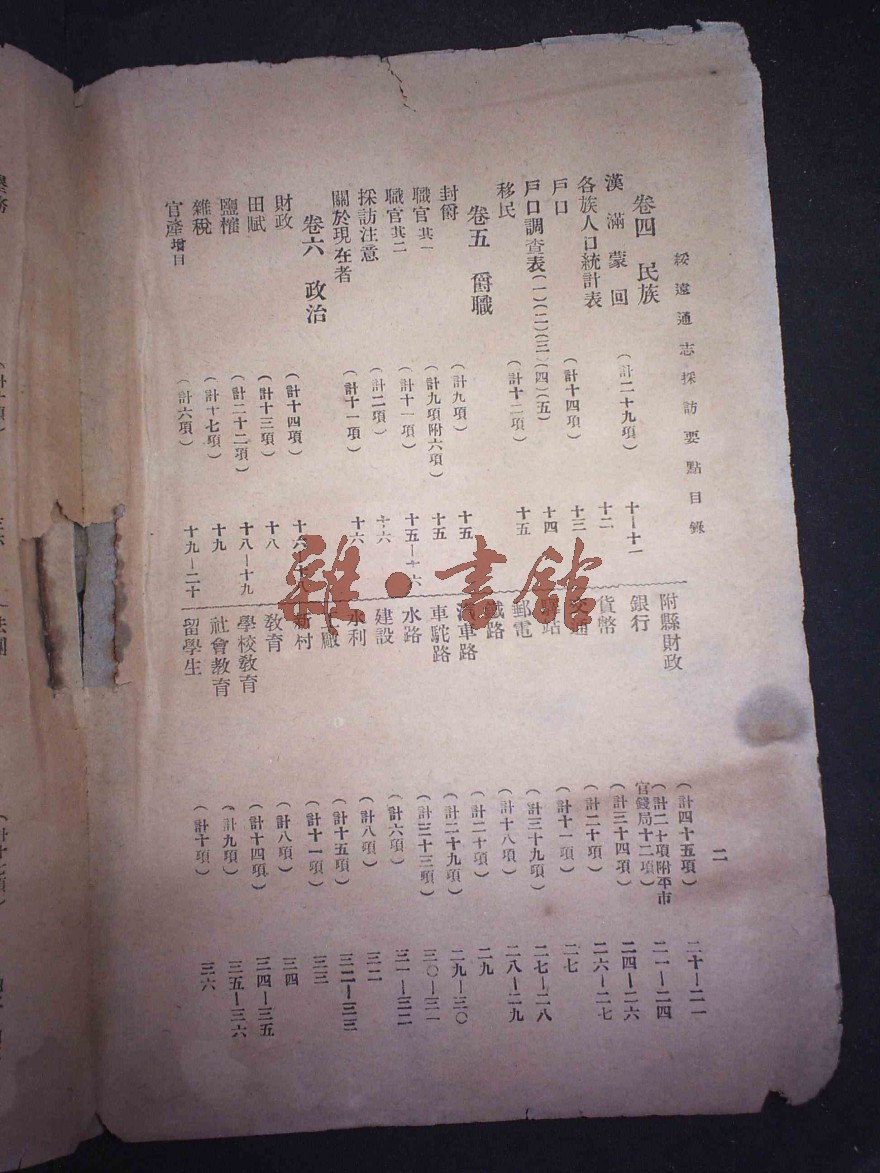 綏遠通志採訪要點目錄
二
卷四 民族
漢 滿 蒙 回 (計二十九項) 十—十一
各族人口統計表 十二
戶口 (計十四項) 十三
戶口調查表(一)(二)(三)(四)(五) 十四
移民 (計十二項) 十五
卷五 爵職
封爵 (計九項) 十五
職官其一 (計九項附六項) 十五
職官其二 (計十一項) 十五—十六
採訪注意 (計二項) 十六
關於現在者 (計十一項) 十六
卷六 政治
財政 (計十四項) 十六—十八
田賦 (計十三項) 十八
鹽榷 (計二十二項) 十八—十九
雜稅 (計十七項) 十九
官產增目 (計六項) 十九—二十
附縣財政 (計四十五項) 二十—二一
銀行 (計二十項附平市官錢局十二項) 二一—二四
貨幣 (計三十四項) 二四—二六
交通 (計二十項) 二六—二七
站 (計十一項) 二七
郵電 (計三十九項) 二七—二八
鐵路 (計十八項) 二八—二九
汽車路 (計二十項) 二九
車駝路 (計二十九項) 二九—三〇
水路 (計三十三項) 三〇—三一
建設 (計六項) 三一—三二
水利 (計八項) 三二
工廠 (計十五項) 三二—三三
新村 (計十一項) 三三
教育 (計八項) 三四
學校教育 (計十四項) 三四—三五
社會教育 (計九項) 三五—三六
留學生 (計十項) 三六
雜·書館